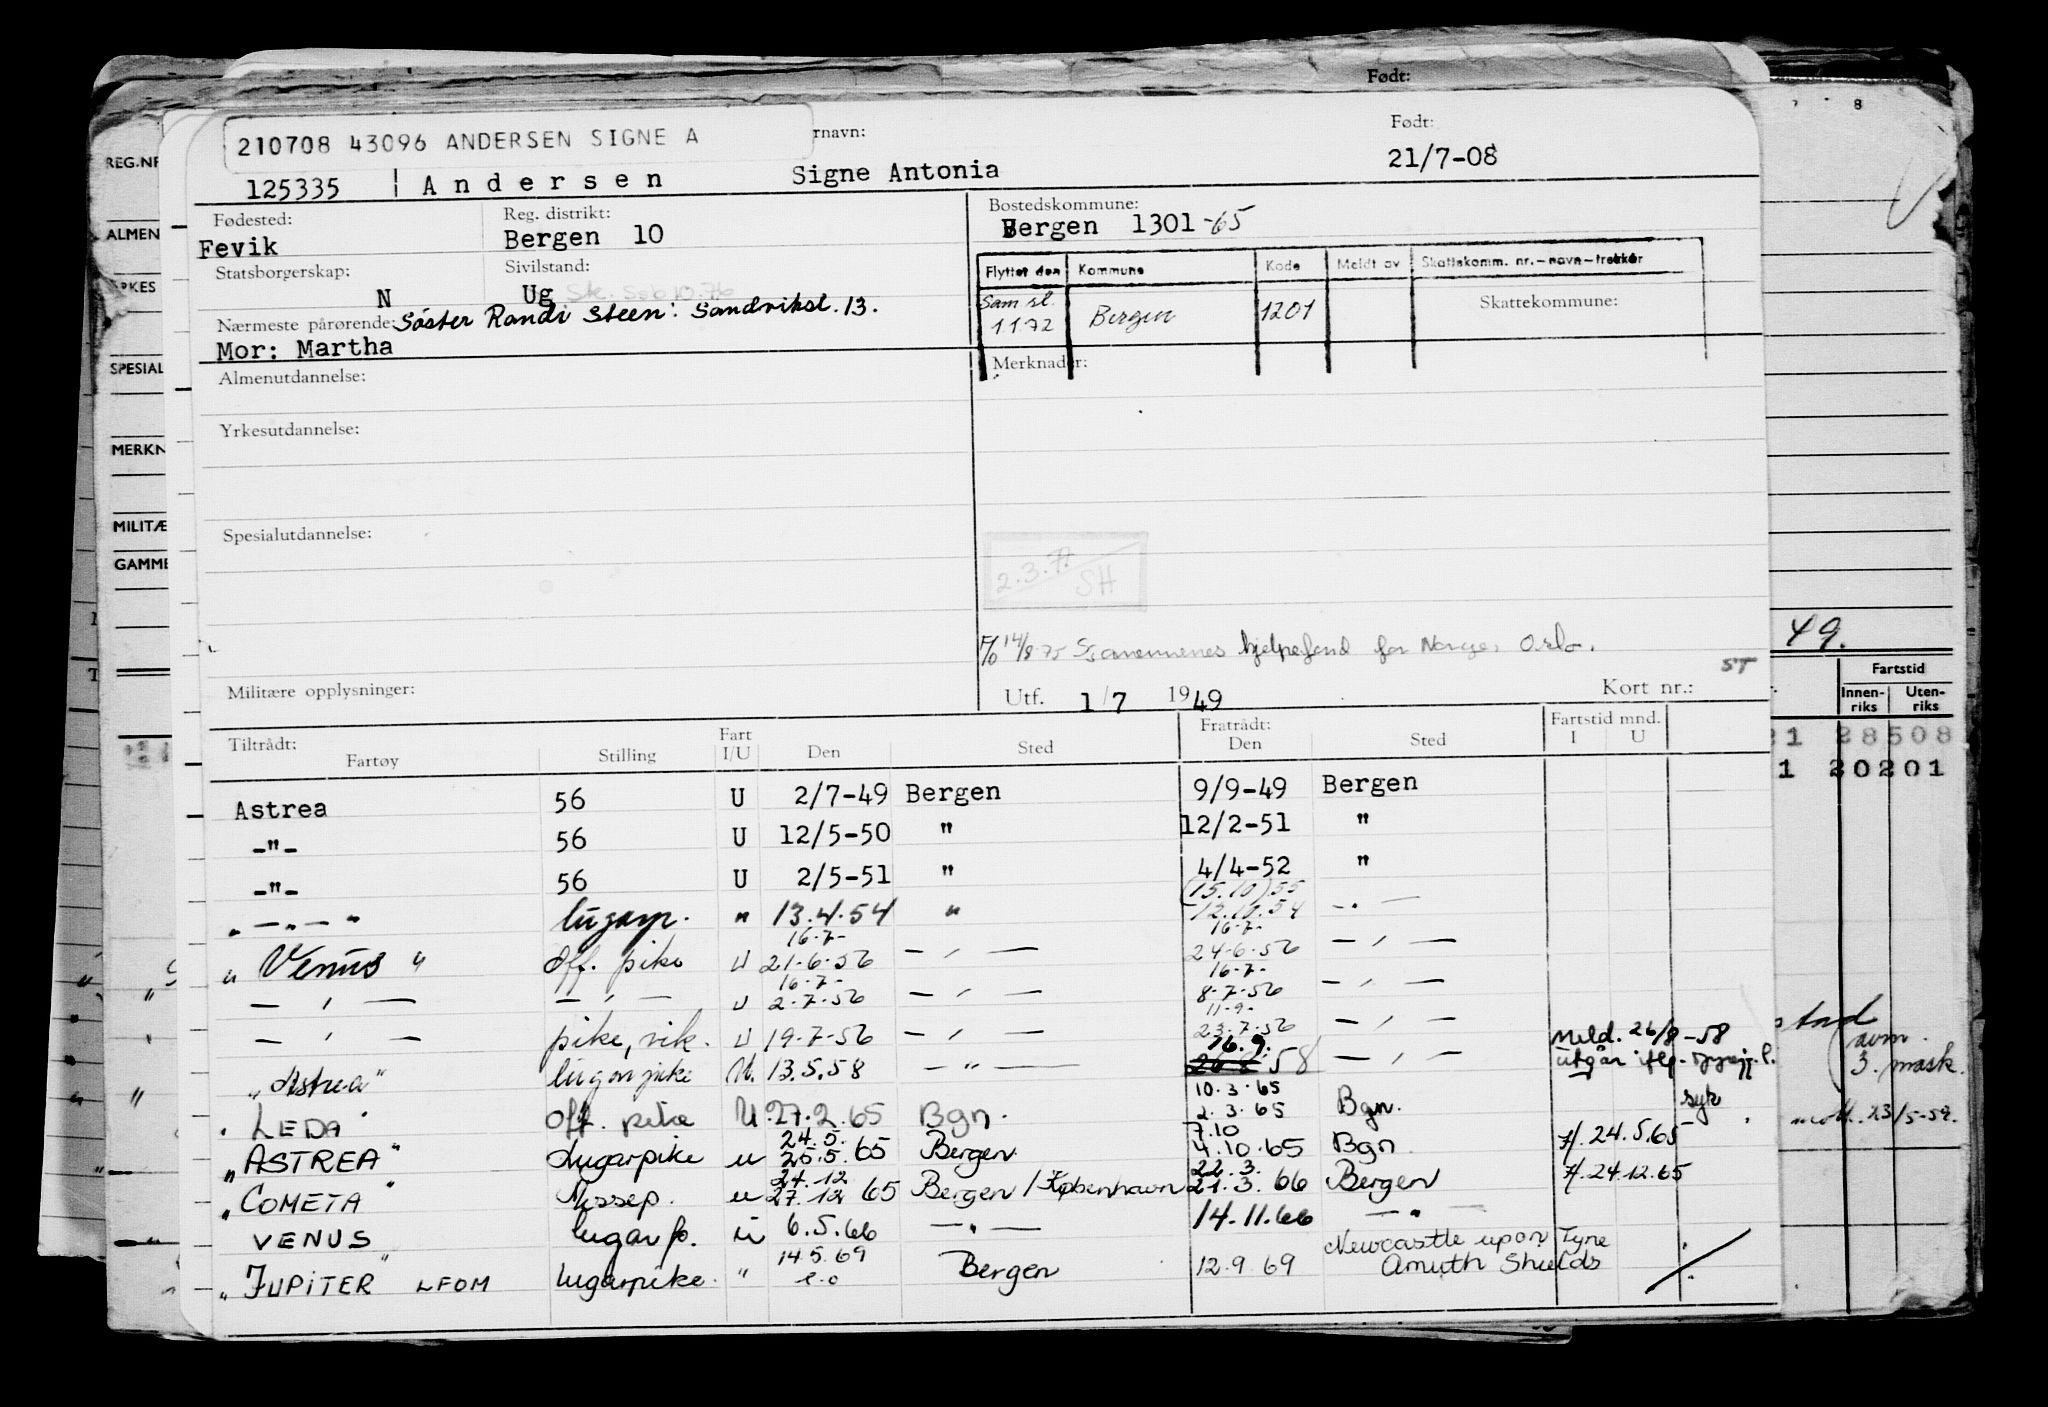 Født:
210708 43096 ANDERSEN SIGNE A
rnavn: Født:
125335 Andersen Signe Antonia 21/7-08
REG.NR
ALMEN
SPESIAL
MERKN
MILITÆ
GAMME
Fødested: Reg. distrikt: Bostedskommune:
Fevik Bergen 10 Bergen 1301 -65
Statsborgerskap: Sivilstand:
N Ug
Flyttet den Kommune Kode Meldt av Skattekomm. nr.-navn-trekkår
Sam sl. 1 1 72 Bergen 1201 Skattekommune:
Nærmeste pårørende: Søster Randi Steen: Sandviksl. 13.
Mor: Martha
Almenutdannelse: Merknader:
Yrkesutdannelse:
Spesialutdannelse:
2.3.77 SH
14/8-75 Sjømennenes hjelpefond for Norge, Oslo.
ST
49.
Militære opplysninger: Utf. 1/7 1949 Kort nr.:
Fartstid
Innen-riks Uten-riks
21 28508
1 20201
Tiltrådt: Fart Fratrådt: Fartstid mnd.
Fartøy Stilling I/U Den Sted Den Sted I U
Astrea 56 U 2/7-49 Bergen 9/9-49 Bergen
-"- 56 U 12/5-50 " 12/2-51 "
-"- 56 U 2/5-51 " 4/4-52 "
(15.10)55
" — " — " lugarp. " 13.4.54 " 12.10.54 — " —
16.7- 16-7-
" Venus " Off. pike U 21-6-56 — " — 24-6-56 — " —
16.7- 16-7-
— " — — " — U 2-7-56 — " — 8-7-56 — " —
11-9-
— " — pike, vik. U 19-7-56 — " — 23-7-56 — " — Meld. 26/8-58
16.9.
"Astrea" lugarpike U. 13.5.58 — " — 58 — " — utgår
10.3.65
LEDA Off. pike U 27.2.65 Bgn. 2.3.65 Bgn. syk
24.5. 7.10
"ASTREA" Lugarpike u 25.5.65 Bergen 4.10.65 Bgn. 24.5.65
24.12 22.3.
"COMETA" Messep. u 27.12 65 Bergen/København 21.3.66 Bergen 24.12.65
VENUS lugarp. u 6.5.66 — " — 14.11.66 — " —
14.5.69 Newcastle upon Tyne
"JUPITER" LFOM lugarpike. " e.o Bergen 12.9.69 Shields
3. mask.
23/5-59.